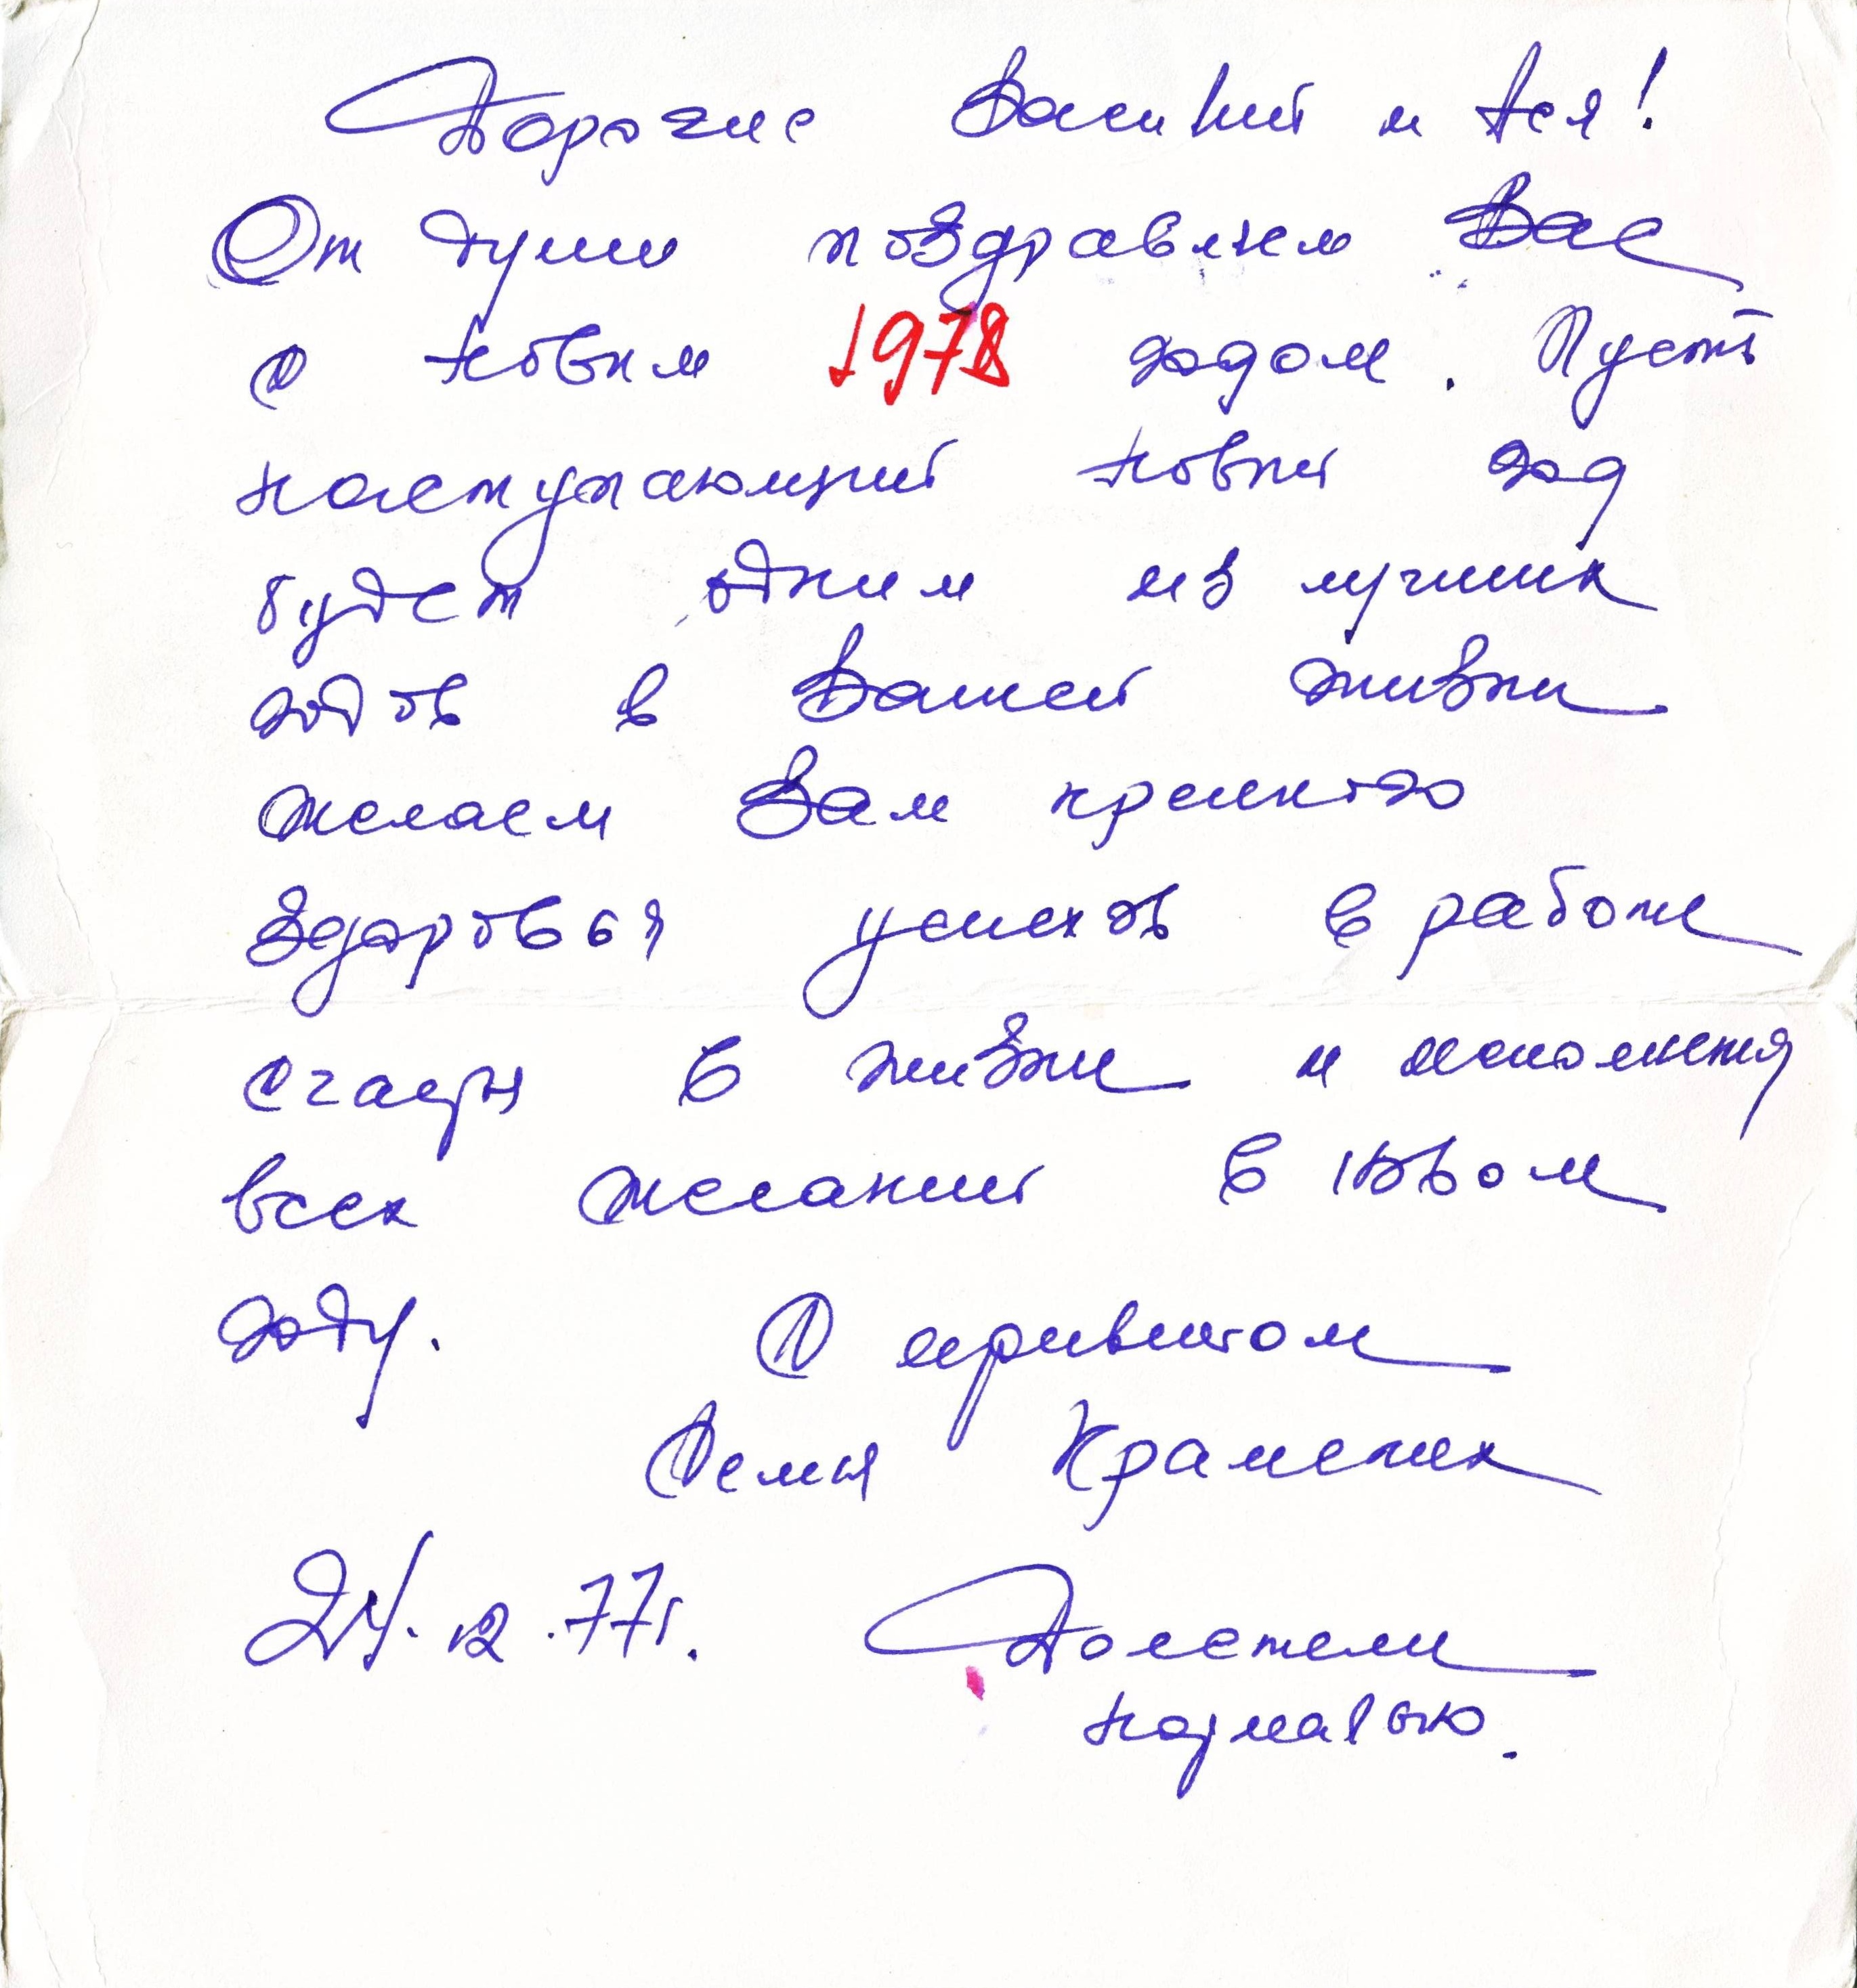 Дорогие Василий и Ася!
От души поздравляем Вас
с новым 1978 годом. Пусть
наступающий новый год
будет одним из лучших
годов в Вашей жизни
желаем Вам крепкого
здоровья успехов в работе
счастья в жизни и исполнения
всех желаний в новом
году. С приветом
Семья
24.12.77г. Долетели
нормально.